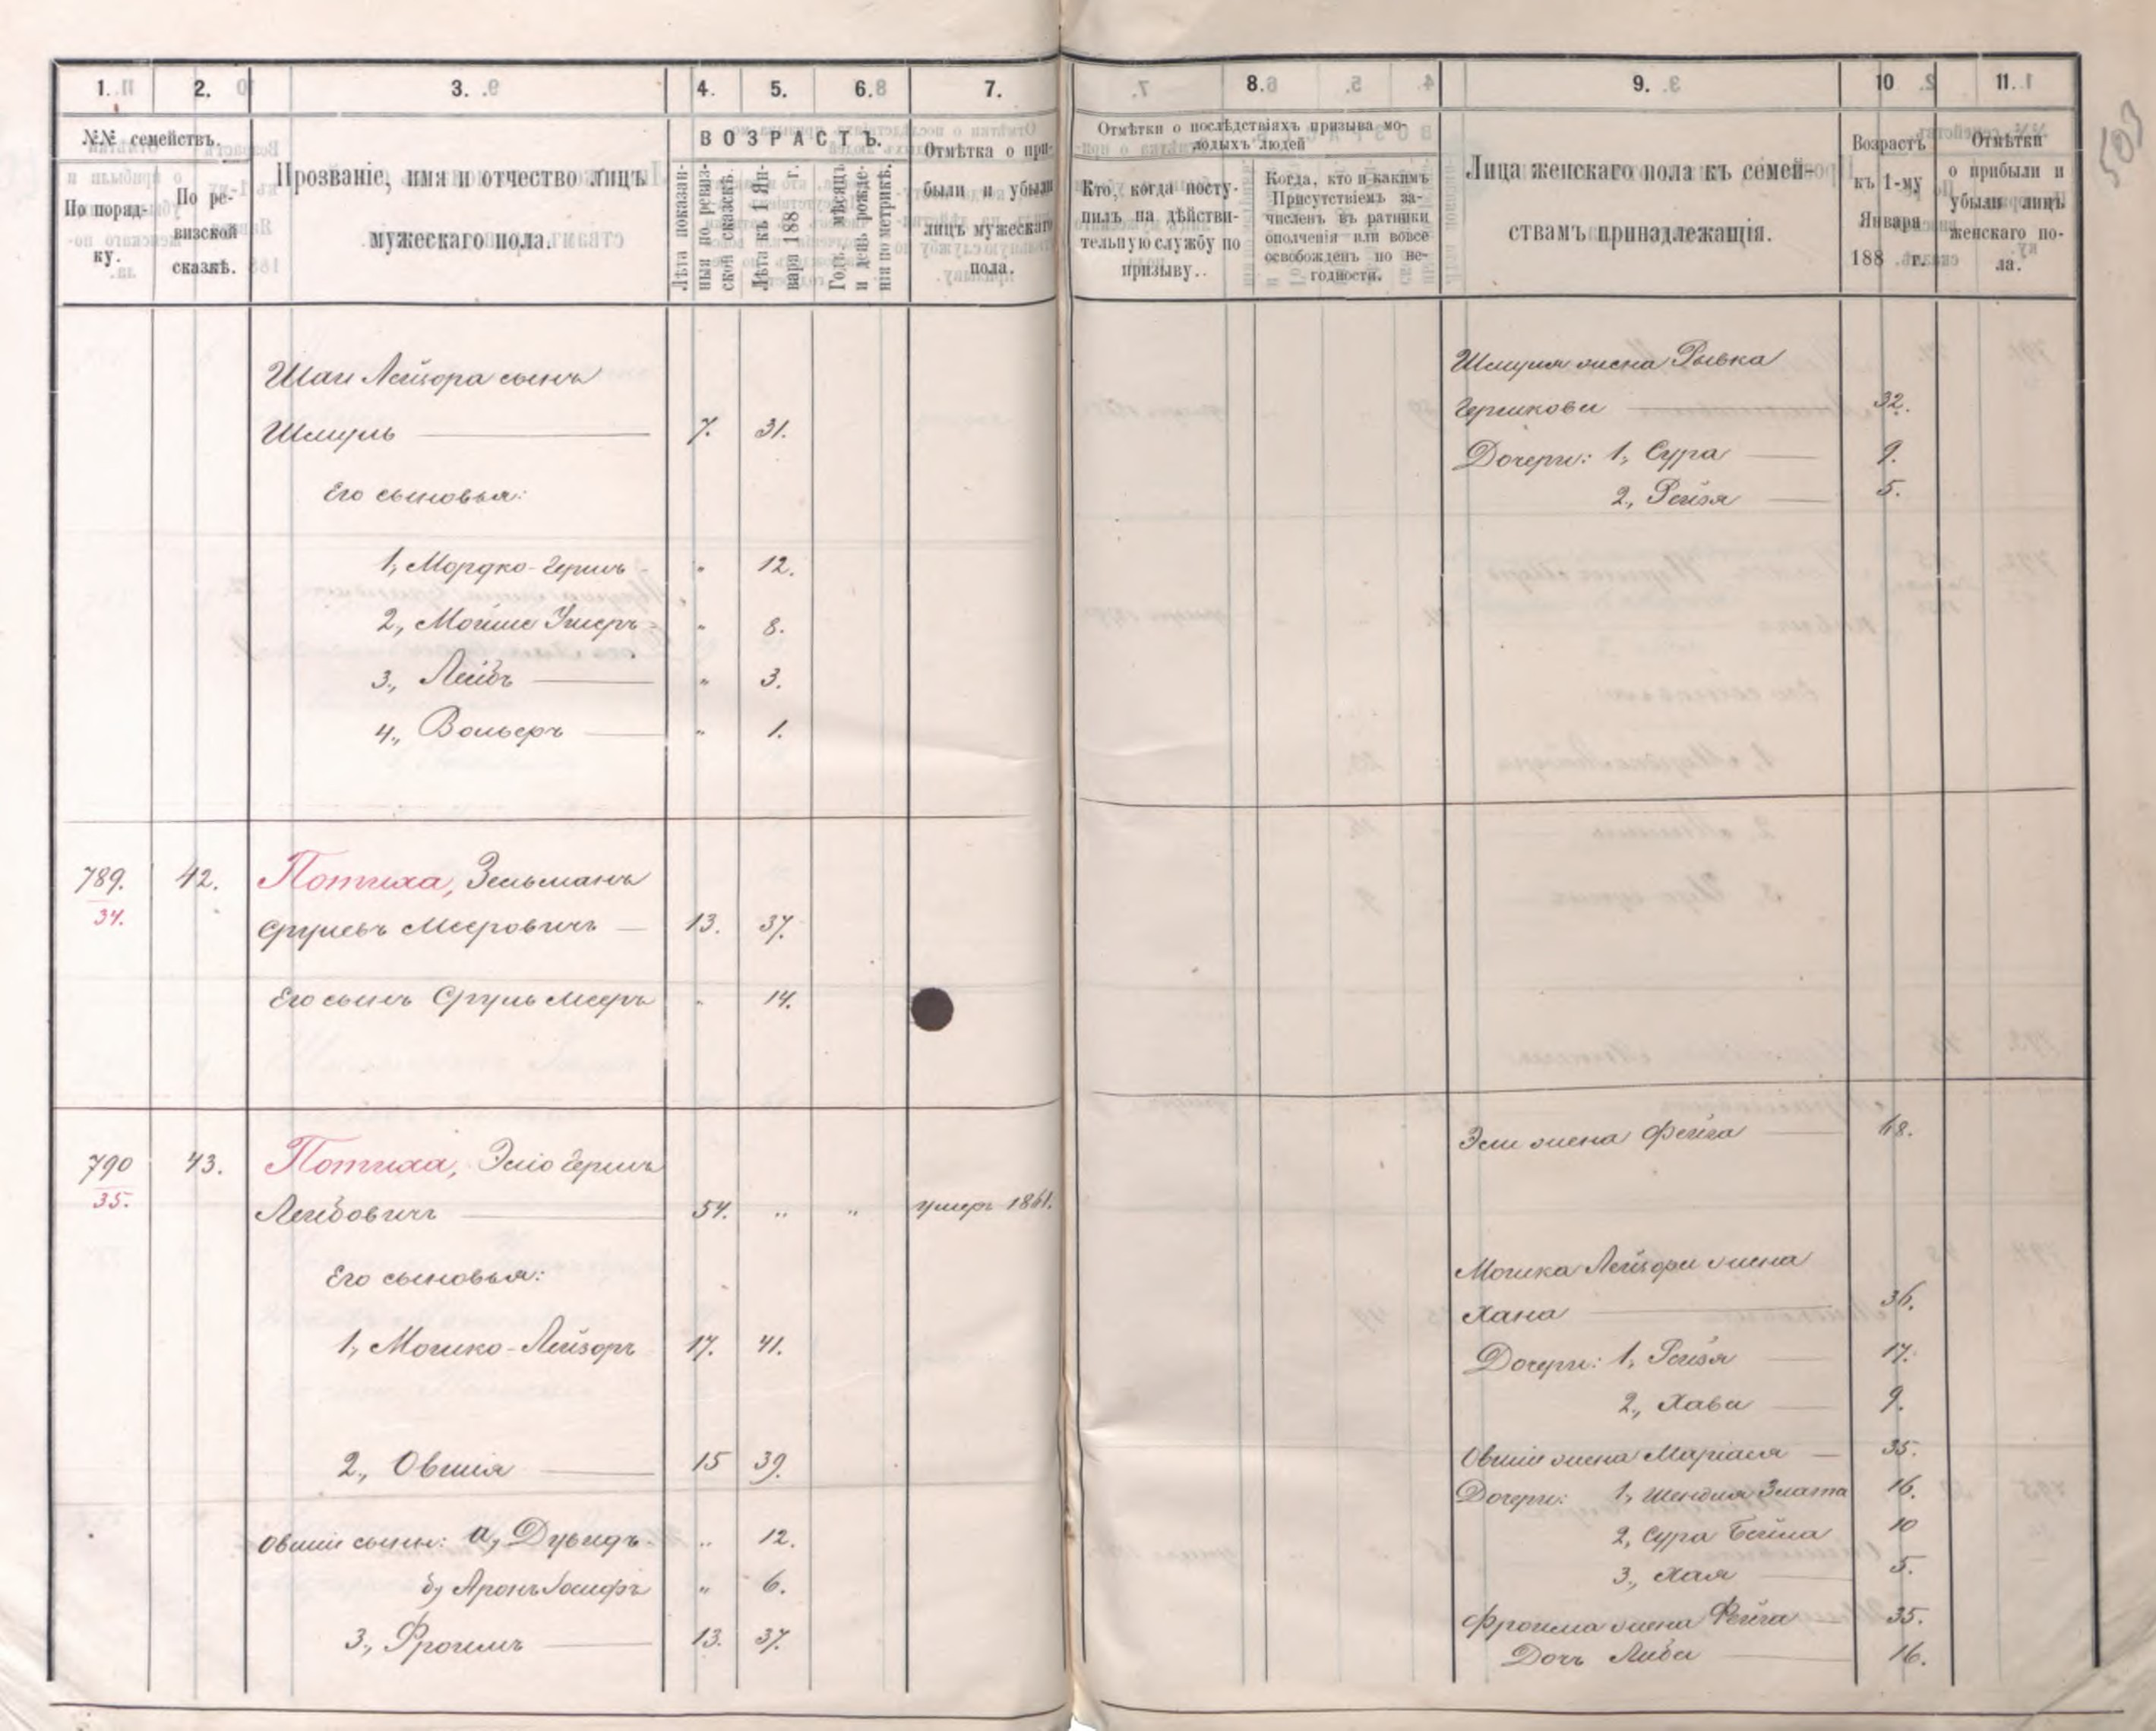 503
1. 2. 3. 4. 5. 6. 7.
№№ семействъ.
По порядку.
По ревизской сказкѣ.
Прозваніе, имя и отчество лицъ
мужескаго пола.
ВОЗРАСТЪ.
Лѣта показанныя по ревизской сказкѣ.
Лѣта къ 1 Января 188 г.
Годъ, мѣсяцъ и день рожденія по метрикѣ.
Отмѣтка о прибыли и убыли лицъ мужескаго пола.
Шаи Лейзора сынъ
Шмуль 7. 31.
Его сыновья:
1, Мордко-Гершъ " 12.
2, Мойше Ушеръ " 8.
3, Лейбъ " 3.
4, Вольфъ " 1.
789. 42. Потиха, Зельманъ
34.
Сруль Мееровичъ 13. 37.
Его сынъ Сруль Мееръ " 14.
790 43. Потиха, Эліо Гершъ
35.
Лейбовичъ 54. " " умеръ 1861.
Его сыновья:
1, Мошко-Лейзоръ 17. 41.
2, Овшія 15 39.
Овшіи сыны: а, Дувидъ " 12.
б, Аронъ Іосифъ " 6.
3, Фроимъ 13. 37.
7. 8. 9. 10 11.
Отмѣтки о послѣдствіяхъ призыва молодыхъ людей
Кто, когда поступилъ на дѣйствительную службу по призыву.
Когда, кто и какимъ Присутствіемъ зачисленъ въ ратники ополченія или вовсе освобожденъ по негодности.
Лица женскаго пола къ семействамъ принадлежащія.
Возрастъ къ 1-му Января 188 г.
Отмѣтки о прибыли и убыли лицъ женскаго пола.
Шмуля жена Рывка
Гершкова 32.
Дочери: 1, Сура 9.
2, Рейзя 5.
Эли жена Фейга 68.
Мошка Лейзора жена
Хана 36.
Дочери: 1, Рейзя 17.
2, Хава 9.
Овшіи жена Маріася 35.
Дочери: 1, Шендля Злата 16.
2, Сура Бейла 10
3, Хая 5.
Фроима жена Фейга 35.
Дочь Либа 16.